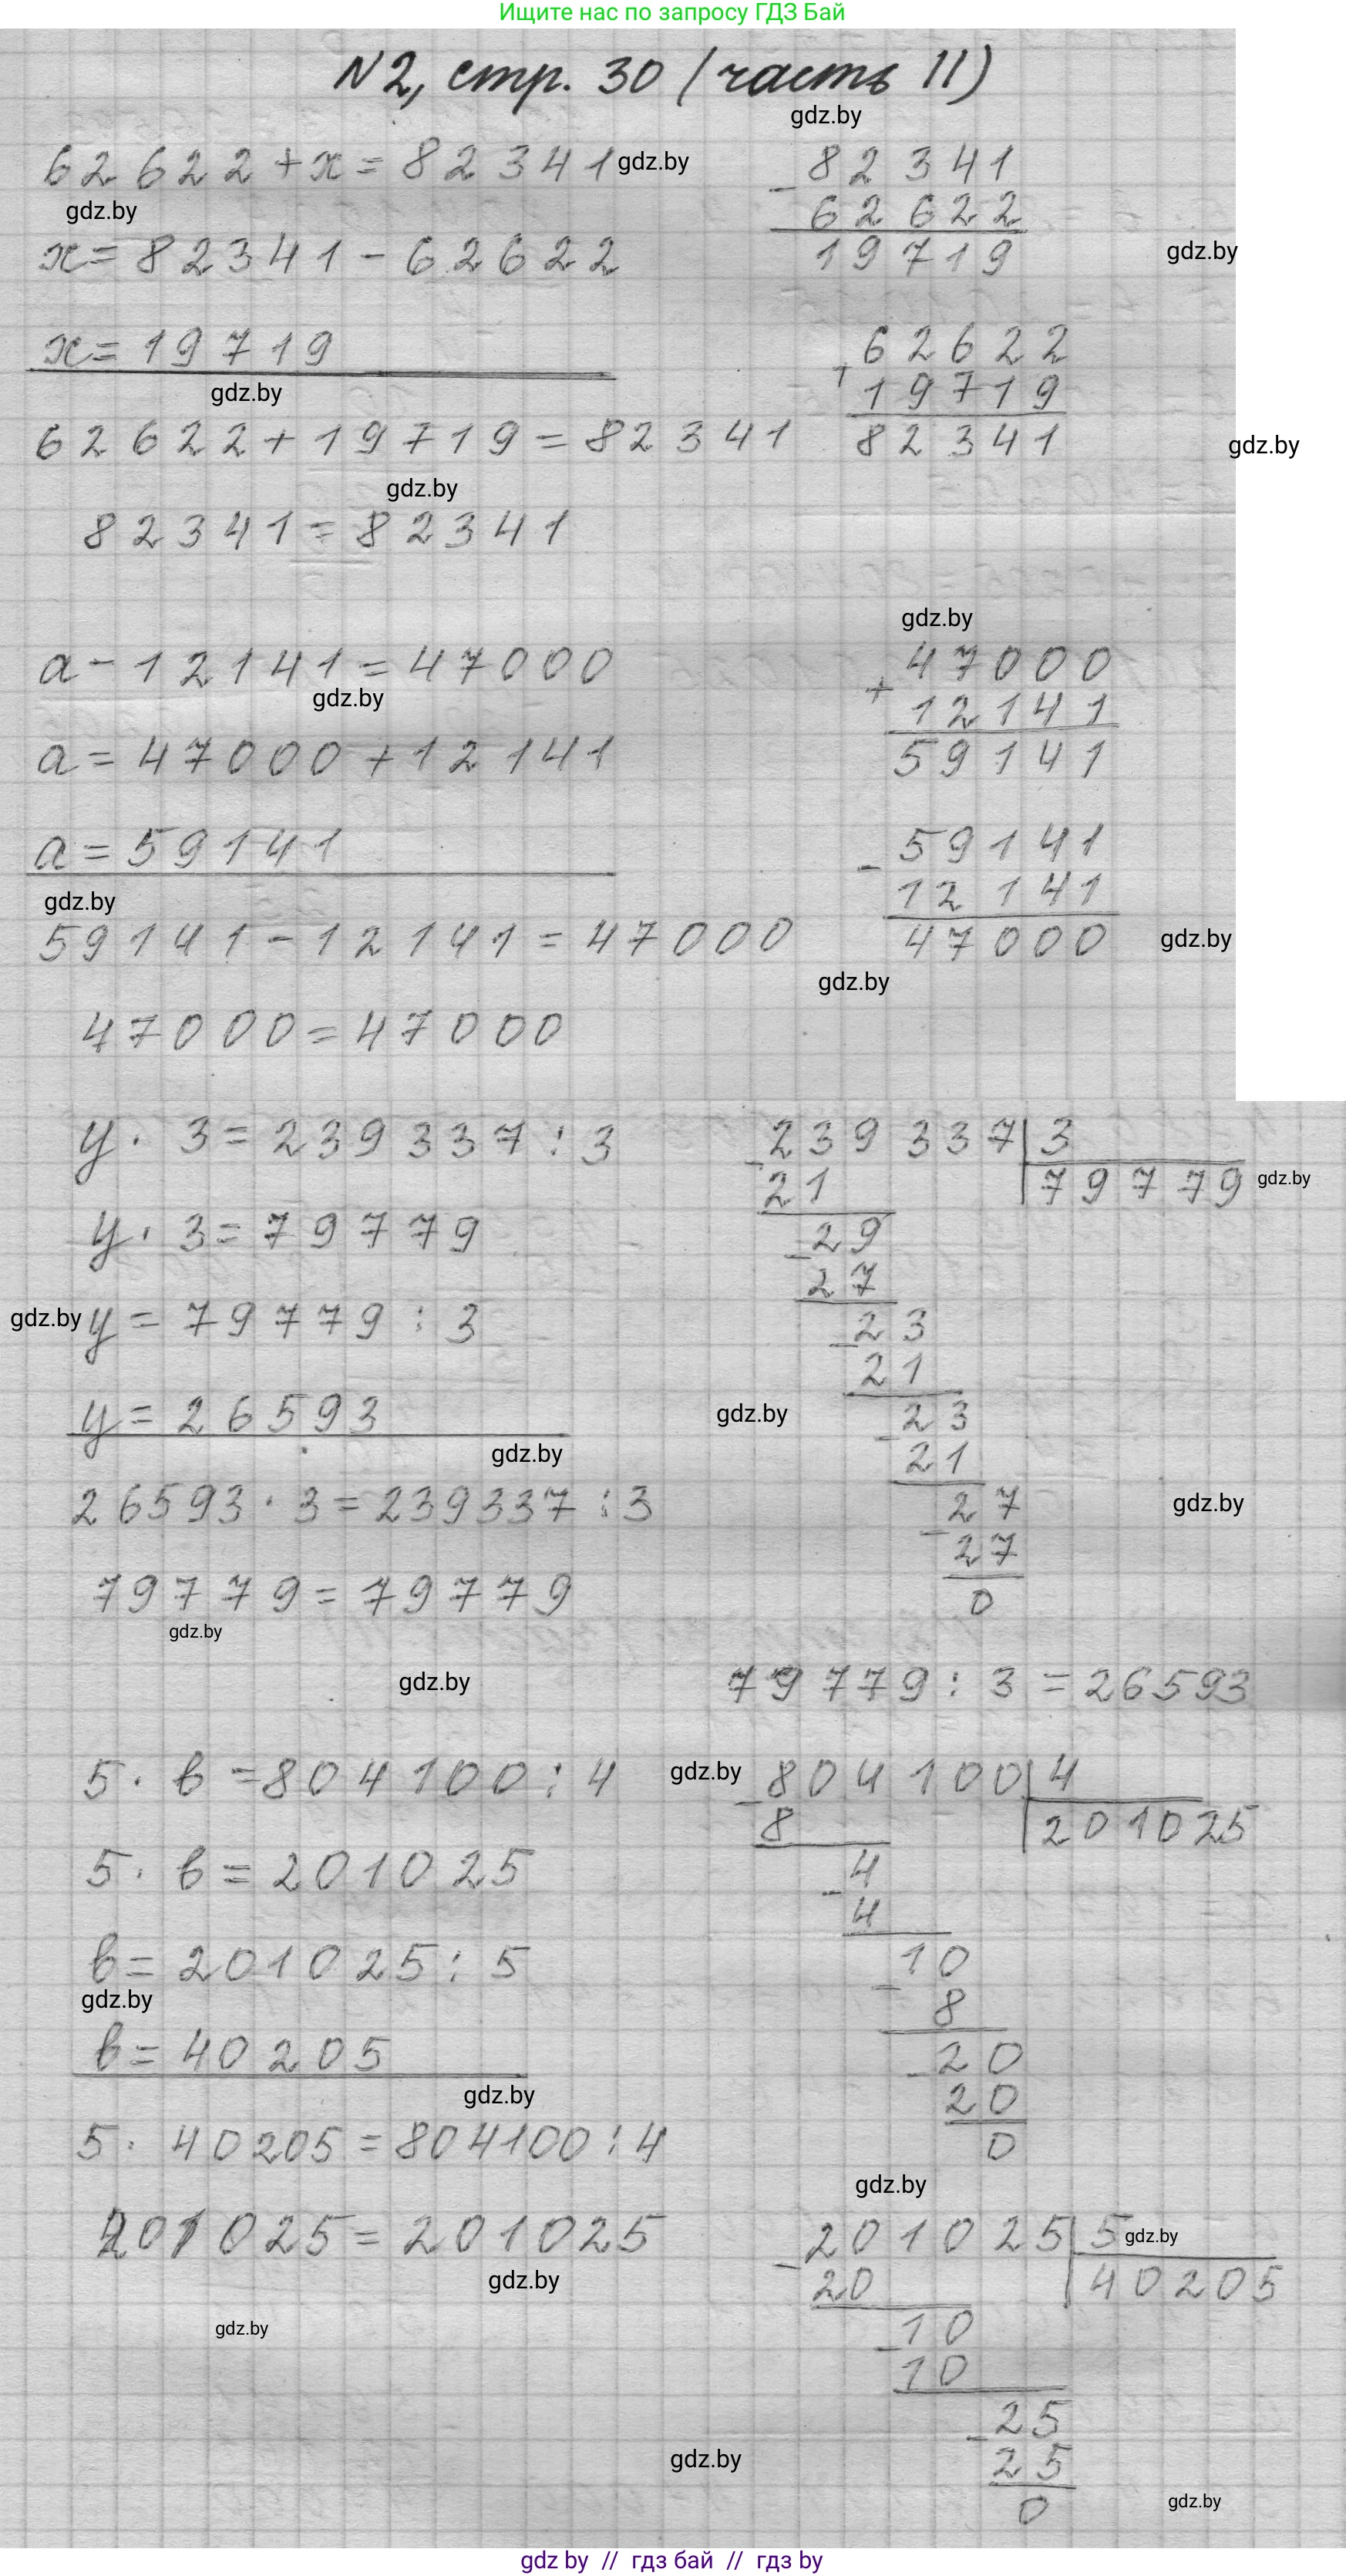 Ищите нас по запросу ГДЗ Бай
N2, стр. 30 (часть II)
gdz.by
62622+x=82341 gdz.by
gdz.by
x=82341-62622
x=19719
gdz.by
62622+19719=82341
gdz.by
82341=82341
- 82341
62622
19719
gdz.by
+ 62622
19719
82341
gdz.by
a-12141=47000
gdz.by
a=47000+12141
a=59141
gdz.by
59141-12141=47000
47000=47000
gdz.by
+ 47000
12141
59141
- 59141
12141
47000
gdz.by
gdz.by
y· 3=239337:3
y· 3=79779
gdz.by y=79779:3
y=26593
gdz.by
26593·3=239337:3
79779=79779
gdz.by
gdz.by
- 239337 3
21 79779 gdz.by
- 29
27
- 23
21
gdz.by
- 23
21
- 27
27
0
gdz.by
79779:3=26593
5·в=804100:4
5·в=201025
в=201025:5
gdz.by
в=40205
gdz.by
5·40205=804100:4
201025=201025
gdz.by
gdz.by
gdz.by
- 804100 4
8 201025
- 4
4
- 10
8
- 20
20
0
gdz.by
- 201025 5 gdz.by
20 40205
- 10
10
- 25
25
0
gdz.by
gdz.by
gdz by // гдз бай // гдз by